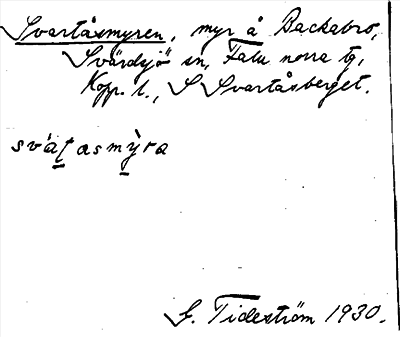 Svartåsmyren, myr å Backabro,
Svärdsjö sn, Falu norra tg,
Kopp. l., S Svartåsberget.
svàṭasmỳra
G. Tideström 1930.